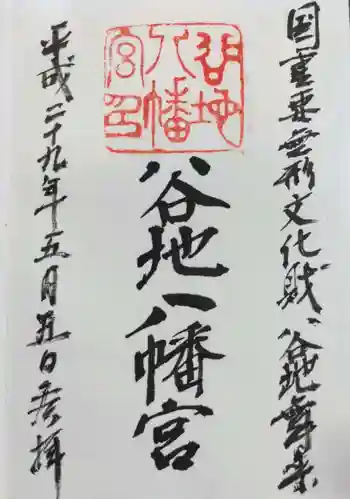 国重要無形文化財、谷地舞楽
谷地八幡宮
谷地八幡宮印
平成二十九年五月五日参拝